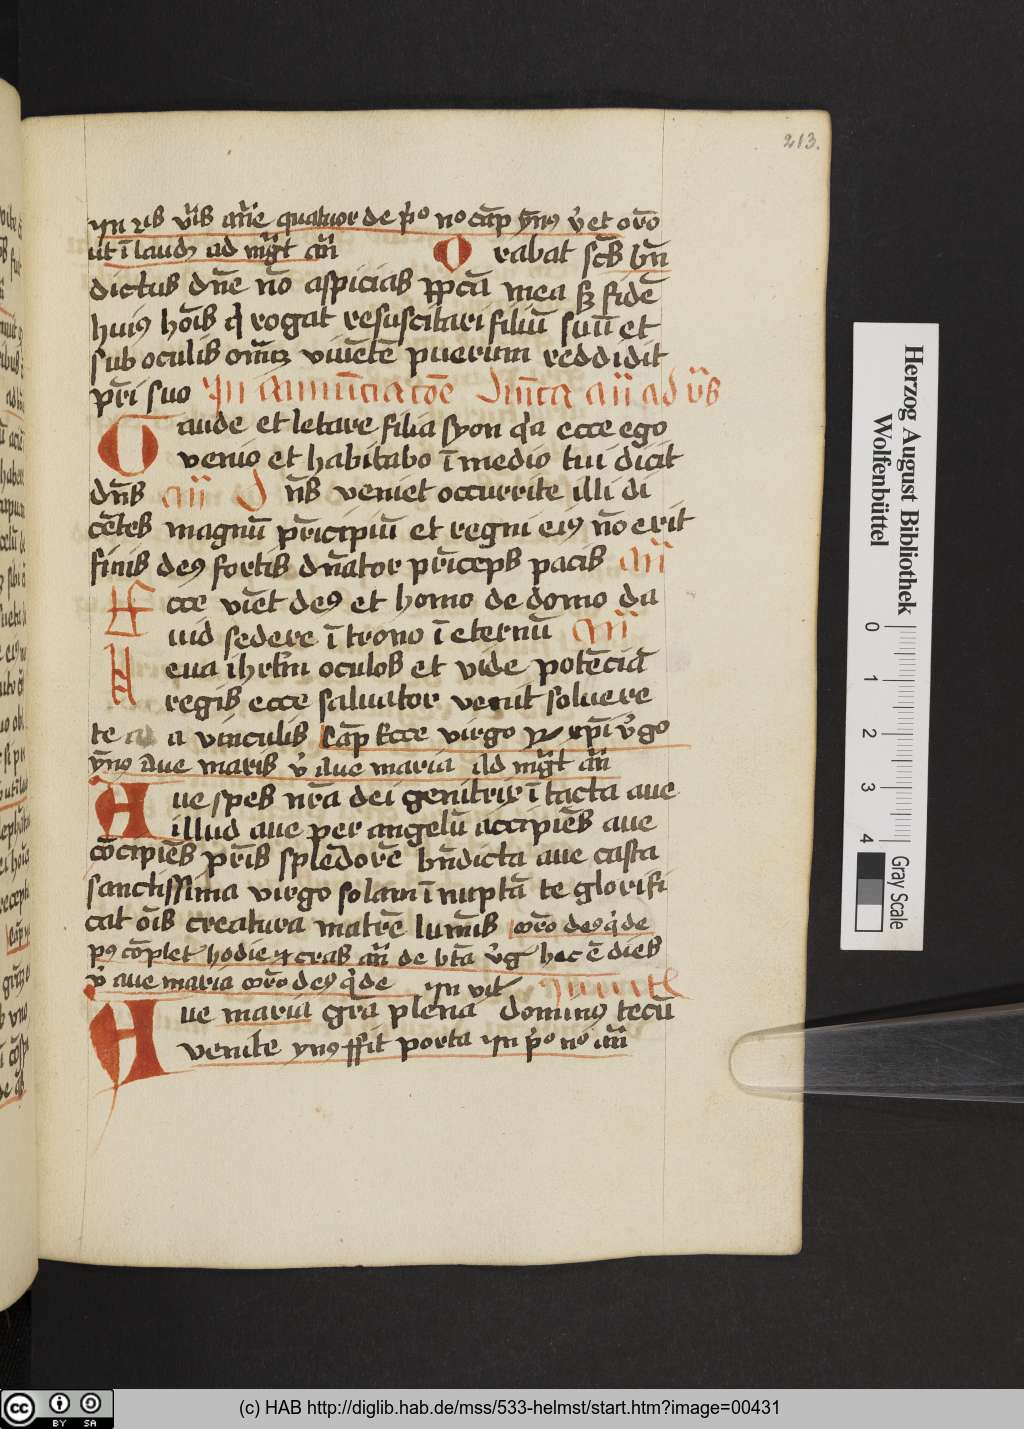 213.
yn ijs v̄is an̄e quatuor de p̊o no cāp ȳn9 v̊ et or̄o
ut ī laudꝫ ad mḡt an̄
O rabat sc̄s bn̄
dictus dn̄e nō aspicias pp̄cā mea sꝫ fidē
hui9 hōis q̇ rogat resuscitari filiū suū et
sub oculis om̄iꝫ viuētē puerum reddidit
pr̄i suo yn annūciatōe an̄ ad v̄s
G aude et letare filia syon q̇a ecce ego
venio et habitabo ī medio tui dicit
dn̄s an̄ D n̄s veniet occurrite illi di
cētes magnū pn̄cipiū et regni ei9 nō erit
finis de9 fortis dn̄ator pn̄ceps pacis an̄
E cce viēt de9 et homo de domo da
uid sedere ī trono ī eternū an̄
L eua ihrl̄m oculos et vide potēciā
regis ecce saluator venit soluere
te a vinculis Cāp Ecce virgo v̊go
ȳn9 Aue maris v̊ Aue maria Ad mḡt an̄
A ue spes nr̄a dei genitrix ītacta aue
illud aue per angelū accipiēs aue
cōcipiēs pr̄is splēdorē bn̄dicta aue casta
sanctissima virgo solam īnuptā te glorifi
cat oīs creatura matrē lumīs or̄o de9 q̇ de
p9 cōplet hodie et cras an̄ de btā v̊g hec ē dies
v̊ aue maria or̄o de9 q̇ de yn vit
A ue maria gr̄a plena domin9 tecū
venite yn9 ffit porta yn p̊o no an̄
Herzog August Bibliothek
Wolfenbüttel
0 1 2 3 4
Gray Scale
cc BY SA
(c) HAB http://diglib.hab.de/mss/533-helmst/start.htm?image=00431